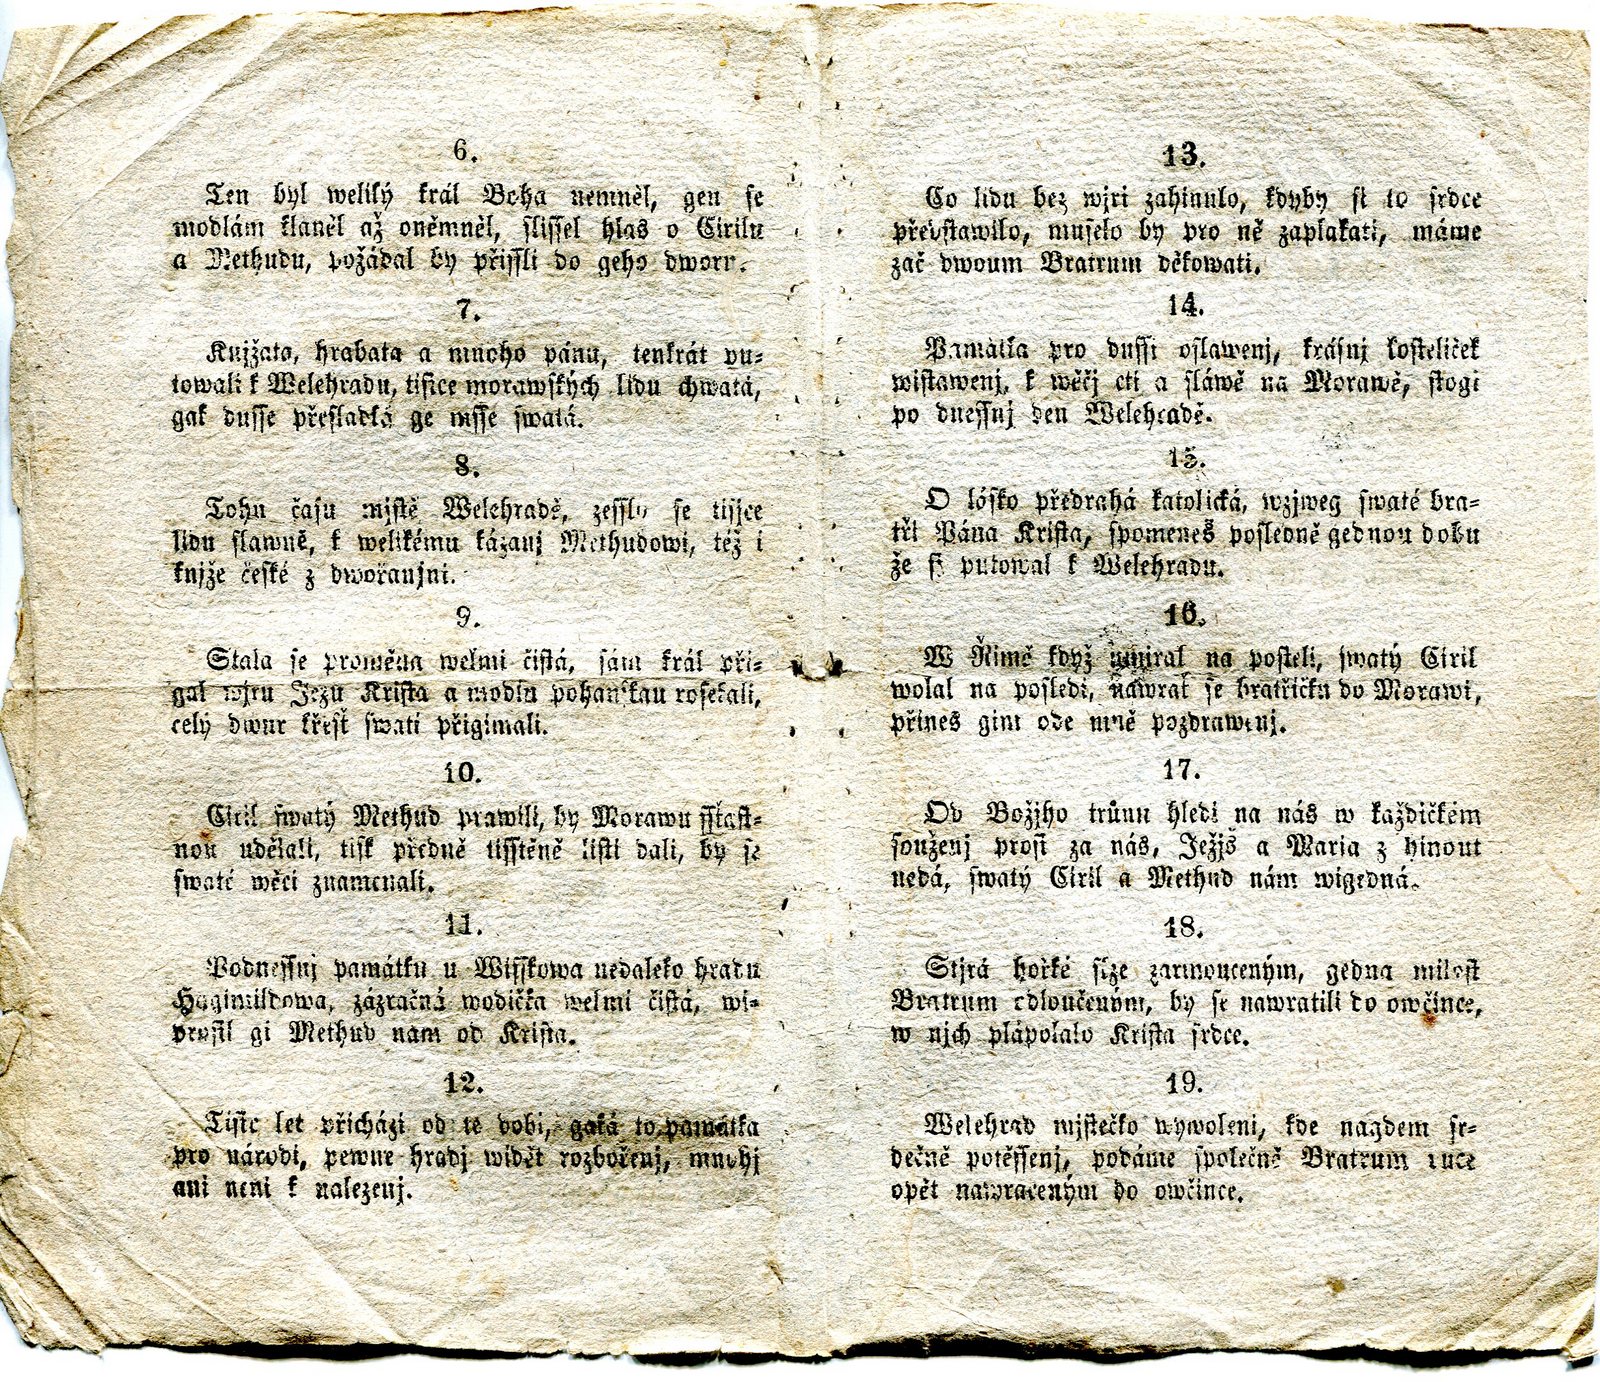 6.
Ten byl weliký král Boha nemněl, gen se
modlám klaněl až oněmněl, slissel hlas o Cirilu
a Methudu, požádal by přissli do geho dworu.
7.
Knjžata, hrabata a mnoho pánu, tenkrát pu-
towali k Welehradu, tisice morawských lidu chwatá,
gak dusse přesladká ge msse swatá.
8.
Tohu času mjstě Welehradě, zesslo se tisjce
lidu slawně, k welikému kázanj Methudowi, též i
knjže české z dwořanjni.
9.
Stala se proměna welmi čistá, sám král při-
gal wjru Jezu Krista a modlu pohanskau rosekali,
celý dwur křest swati přigimali.
10.
Ciril swatý Methud prawili, by Morawu sstast-
nou udělali, tisk předně tisstěně listi dali, by se
swaté wěci znamenali.
11.
Podnessnj památku u Wisskowa nedaleko hradu
Hagimildowa, zázračná wodička welmi čistá, wi-
prosil gi Methud nám od Krista.
12.
Tisic let přicházi od te dobi, gaká to památka
pro národi, pewne hradj widět rozbořenj, mnohj
ani neni k nalezenj.
13.
Co lidu bez wjri zahinulo, kdyby si to srdce
představilo, muselo by pro ně zaplakati, máme
zač dwoum Bratrum děkowati.
14.
Památka pro dussi oslawenj, krásnj kosteliček
wistawenj, k wěčj cti a sláwě na Morawě, stogi
po dnessnj den Welehradě.
15.
O lásko předrahá katolická, wzjweg swaté bra-
tři Pána Krista, spomeneš posledně gednou dobu
že si putowal k Welehradu.
16.
W Řimě když umiral na posteli, swatý Ciril
wolal na posledi, nawrat se bratřičku do Morawi,
přines gim ode mně pozdrawenj.
17.
Od Božjho trůnu hledi na nás w každičkém
souženj prosi za nás, Ježjš a Maria z hinout
nedá, swatý Ciril a Methud nám wigedná.
18.
Stjrá hořké slze zarmouceným, gedna milost
Bratrum odloučeným, by se nawratili do owčince,
w njch plápolalo Krista srdce.
19.
Welehrad mjstečko wywoleni, kde nagdem sr-
dečně potěssenj, podáme společně Bratrum ruce
opět nawraceným do owčince.